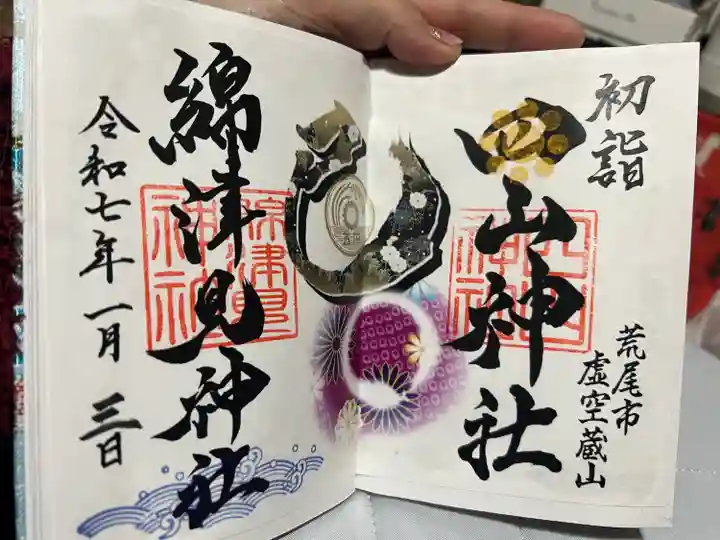 初詣
四山神社
四山神社
荒尾市
虚空蔵山
綿津見神社
綿津見神社
令和七年一月三日